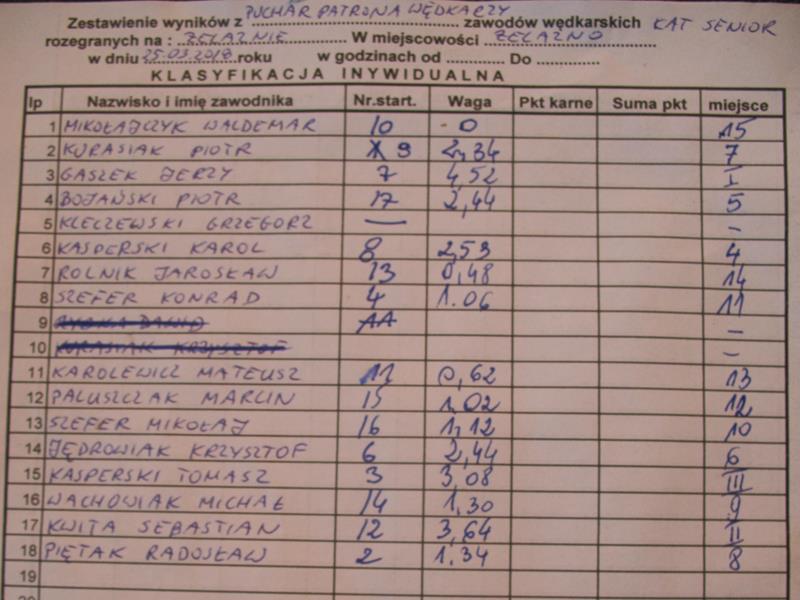 Zestawienie wyników z PUCHAR PATRONA WĘDKARZY zawodów wędkarskich KAT SENIOR
rozegranych na : ZELAZNIE W miejscowości ZELAZNO
w dniu 25.03.2018 roku w godzinach od ............. Do .............
KLASYFIKACJA INYWIDUALNA
lp Nazwisko i imię zawodnika Nr.start. Waga Pkt karne Suma pkt miejsce
1 MIKOŁAJCZYK WALDEMAR 10 - 0 15
2 KURASIAK PIOTR 9 2,34 7
3 GASZEK JERZY 7 4,52 I
4 BOJAŃSKI PIOTR 17 2,44 5
5 KLECZEWSKI GRZEGORZ — -
6 KASPERSKI KAROL 8 2,53 4
7 ROLNIK JAROSŁAW 13 0,48 14
8 SZEFER KONRAD 4 1.06 11
9 -
10 KURASIAK KRZYSZTOF -
11 KAROLEWICZ MATEUSZ 11 0,62 13
12 PALUSZCZAK MARCIN 15 1,02 12
13 SZEFER MIKOŁAJ 16 1,12 10
14 JĘDROWIAK KRZYSZTOF 6 2,44 6
15 KASPERSKI TOMASZ 3 3,08 III
16 WACHOWIAK MICHAŁ 14 1,30 9
17 KWITA SEBASTIAN 12 3,64 II
18 PIĘTAK RADOSŁAW 2 1.34 8
19